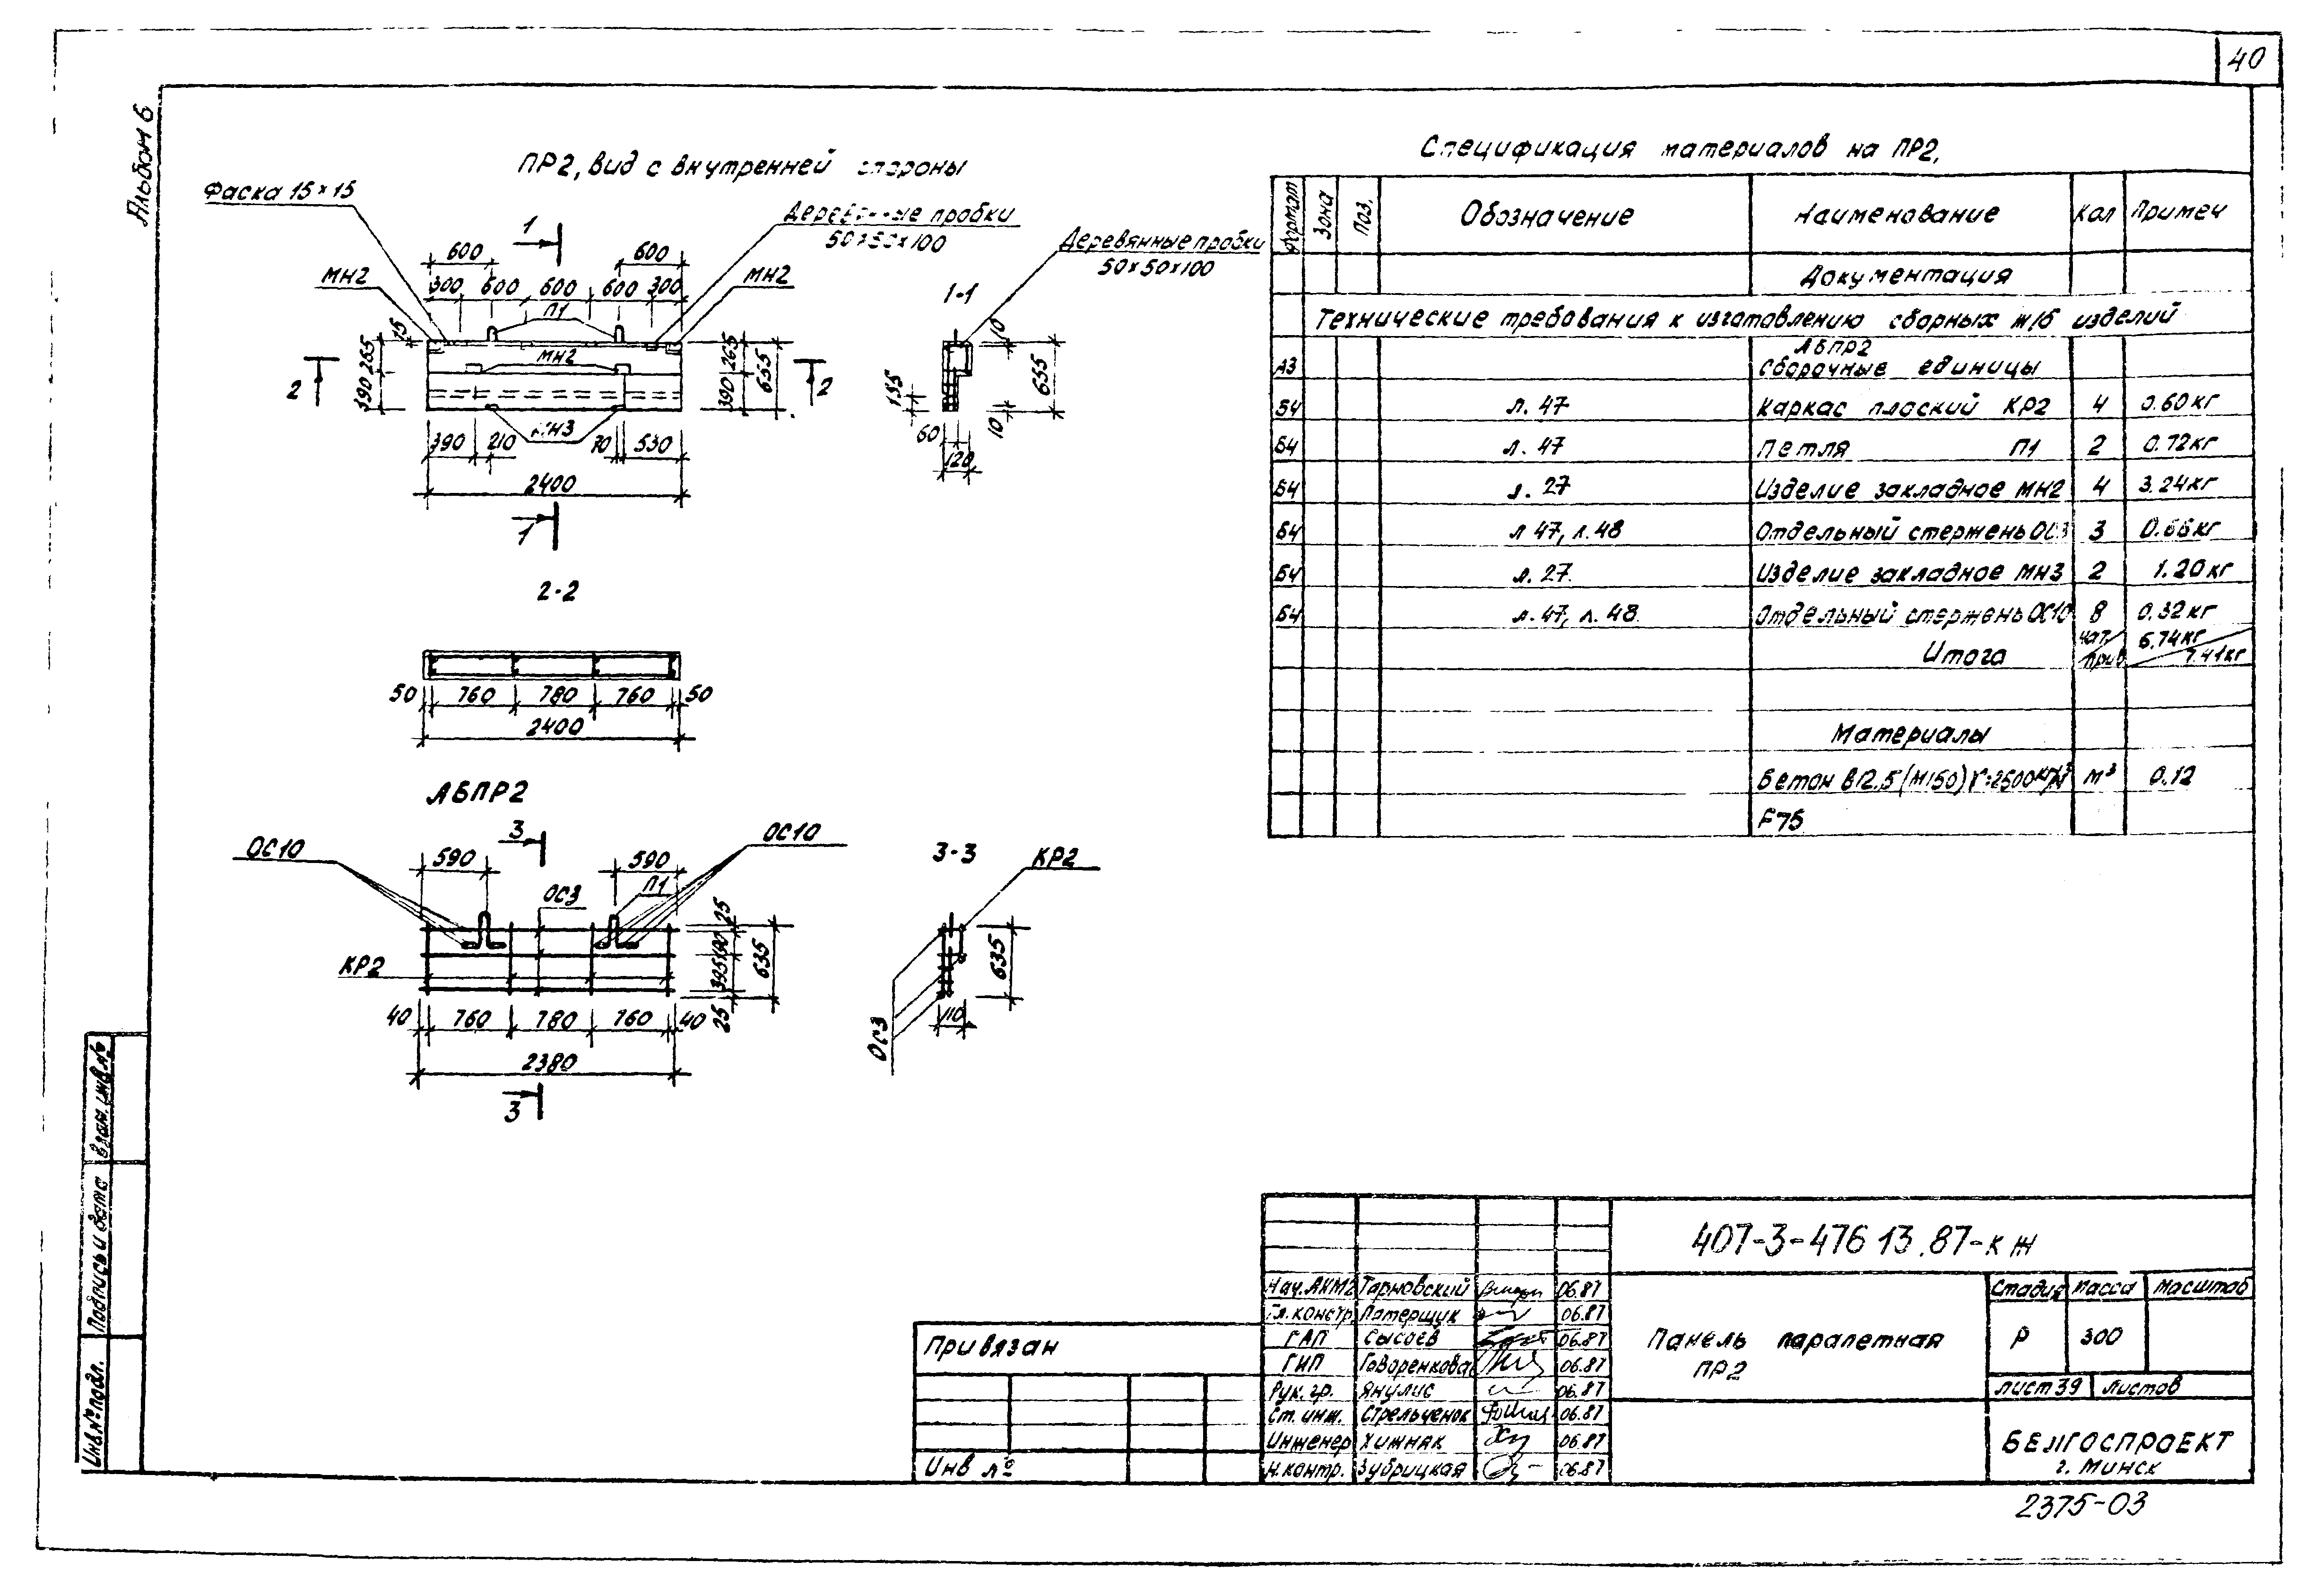 40
Альбом 6
ПР2, вид с внутренней стороны
Фаска 15×15
Деревянные пробки
50×50×100
1
600
600
МН2
МН2
300
600
600
600
300
П1
15
265
390
МН2
265
390
655
2
2
МН3
390
210
70
530
2400
1
1-1
Деревянные пробки
50×50×100
10
655
135
10
60
120
2-2
50
760
780
760
50
2400
АБПР2
3
ОС10
ОС10
590
590
ОС3
П1
КР2
25
190
395
25
635
40
760
780
760
40
2380
3
3-3
КР2
635
110
ОС3
Спецификация материалов на ПР2.
Формат
Зона
Поз.
Обозначение
Наименование
Кол
Примеч
Документация
Технические требования к изготовлению сборных ж/б изделий
АБПР2
А3 Сборочные единицы
Б4 л. 47 Каркас плоский КР2 4 0.60кг
Б4 л. 47 Петля П1 2 0.72кг
Б4 л. 27 Изделие закладное МН2 4 3.24кг
Б4 л 47, л. 48 Отдельный стержень ОС3 3 0.66кг
Б4 л. 27. Изделие закладное МН3 2 1.20кг
Б4 л. 47, л. 48. Отдельный стержень ОС10 8 0.32кг
Итого нат/прив 6.74кг/7.41кг
Материалы
Бетон В12,5 (М150) γ=2500кг/м³ м³ 0.12
F75
407-3-476 13.87-кж
Нач.АКМ2 Тарновский 06.87
Гл.констр. Патерщук 06.87
ГАП Сысоев 06.87
ГИП Говоренкова 06.87
Рук. гр. Янулис 06.87
Ст. инж. Стрельченок 06.87
Инженер Хижняк 06.87
Н.контр. Зубрицкая 06.87
Панель парапетная
ПР2
Стадия Масса Масштаб
Р 300
Лист 39 Листов
БЕЛГОСПРОЕКТ
г. Минск
Привязан
Инв №
2375-03
Взам. инв.№
Подпись и дата
Инв.№ подл.